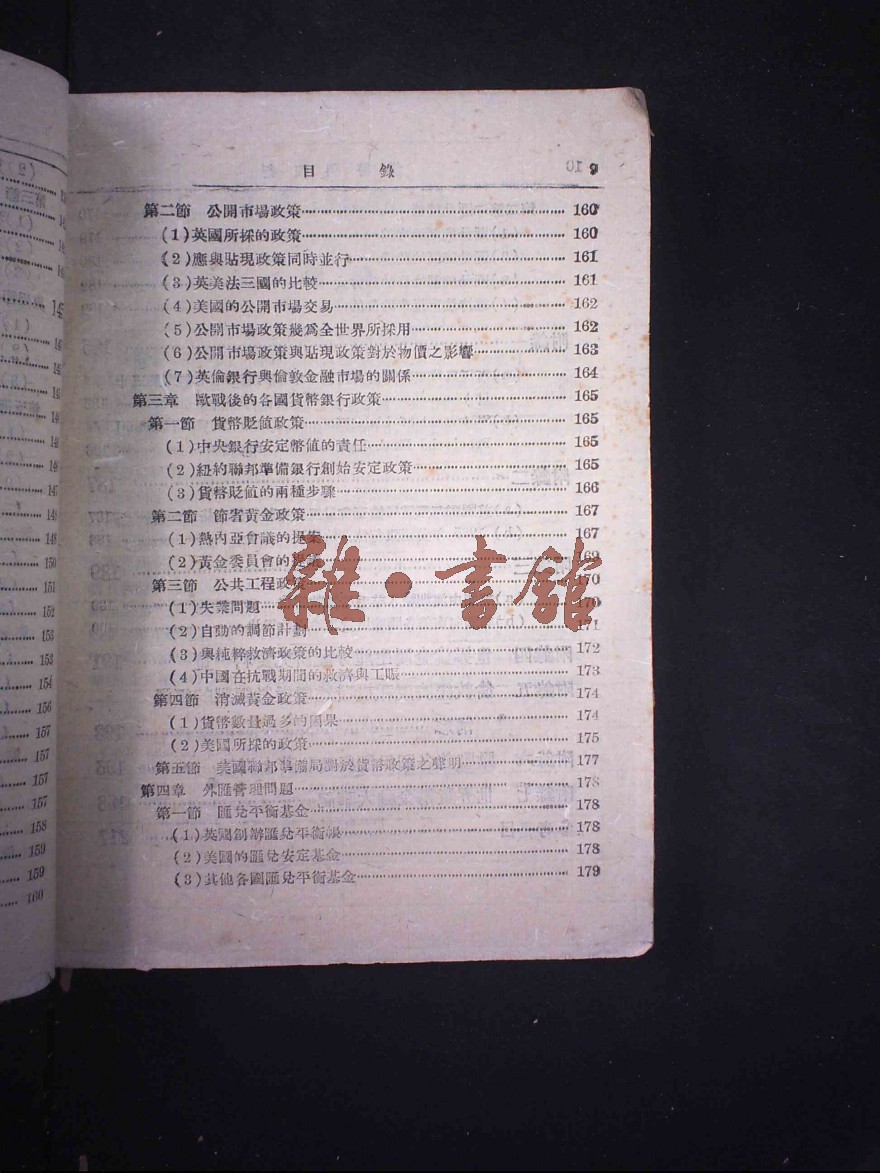 目錄 9
第二節 公開市場政策 160
(1)英國所採的政策 160
(2)應與貼現政策同時並行 161
(3)英美法三國的比較 161
(4)美國的公開市場交易 162
(5)公開市場政策幾爲全世界所採用 162
(6)公開市場政策與貼現政策對於物價之影響 163
(7)英倫銀行與倫敦金融市場的關係 164
第三章 歐戰後的各國貨幣銀行政策 165
第一節 貨幣貶値政策 165
(1)中央銀行安定幣値的責任 165
(2)紐約聯邦準備銀行創始安定政策 165
(3)貨幣貶値的兩種步驟 166
第二節 節省黃金政策 167
(1)熱內亞會議的提案 167
(2)黃金委員會的 169
第三節 公共工程政策 170
(1)失業問題 170
(2)自動的調節計劃 171
(3)與純粹救濟政策的比較 172
(4)中國在抗戰期間的救濟與工賑 173
第四節 消滅黃金政策 174
(1)貨幣數量過多的因果 174
(2)美國所採的政策 175
第五節 美國聯邦準備局對於貨幣政策之聲明 177
第四章 外匯管理問題 178
第一節 匯兌平衡基金 178
(1)英國創辦匯兌平衡帳 178
(2)美國的匯兌安定基金 178
(3)其他各國匯兌平衡基金 179
雜·書館